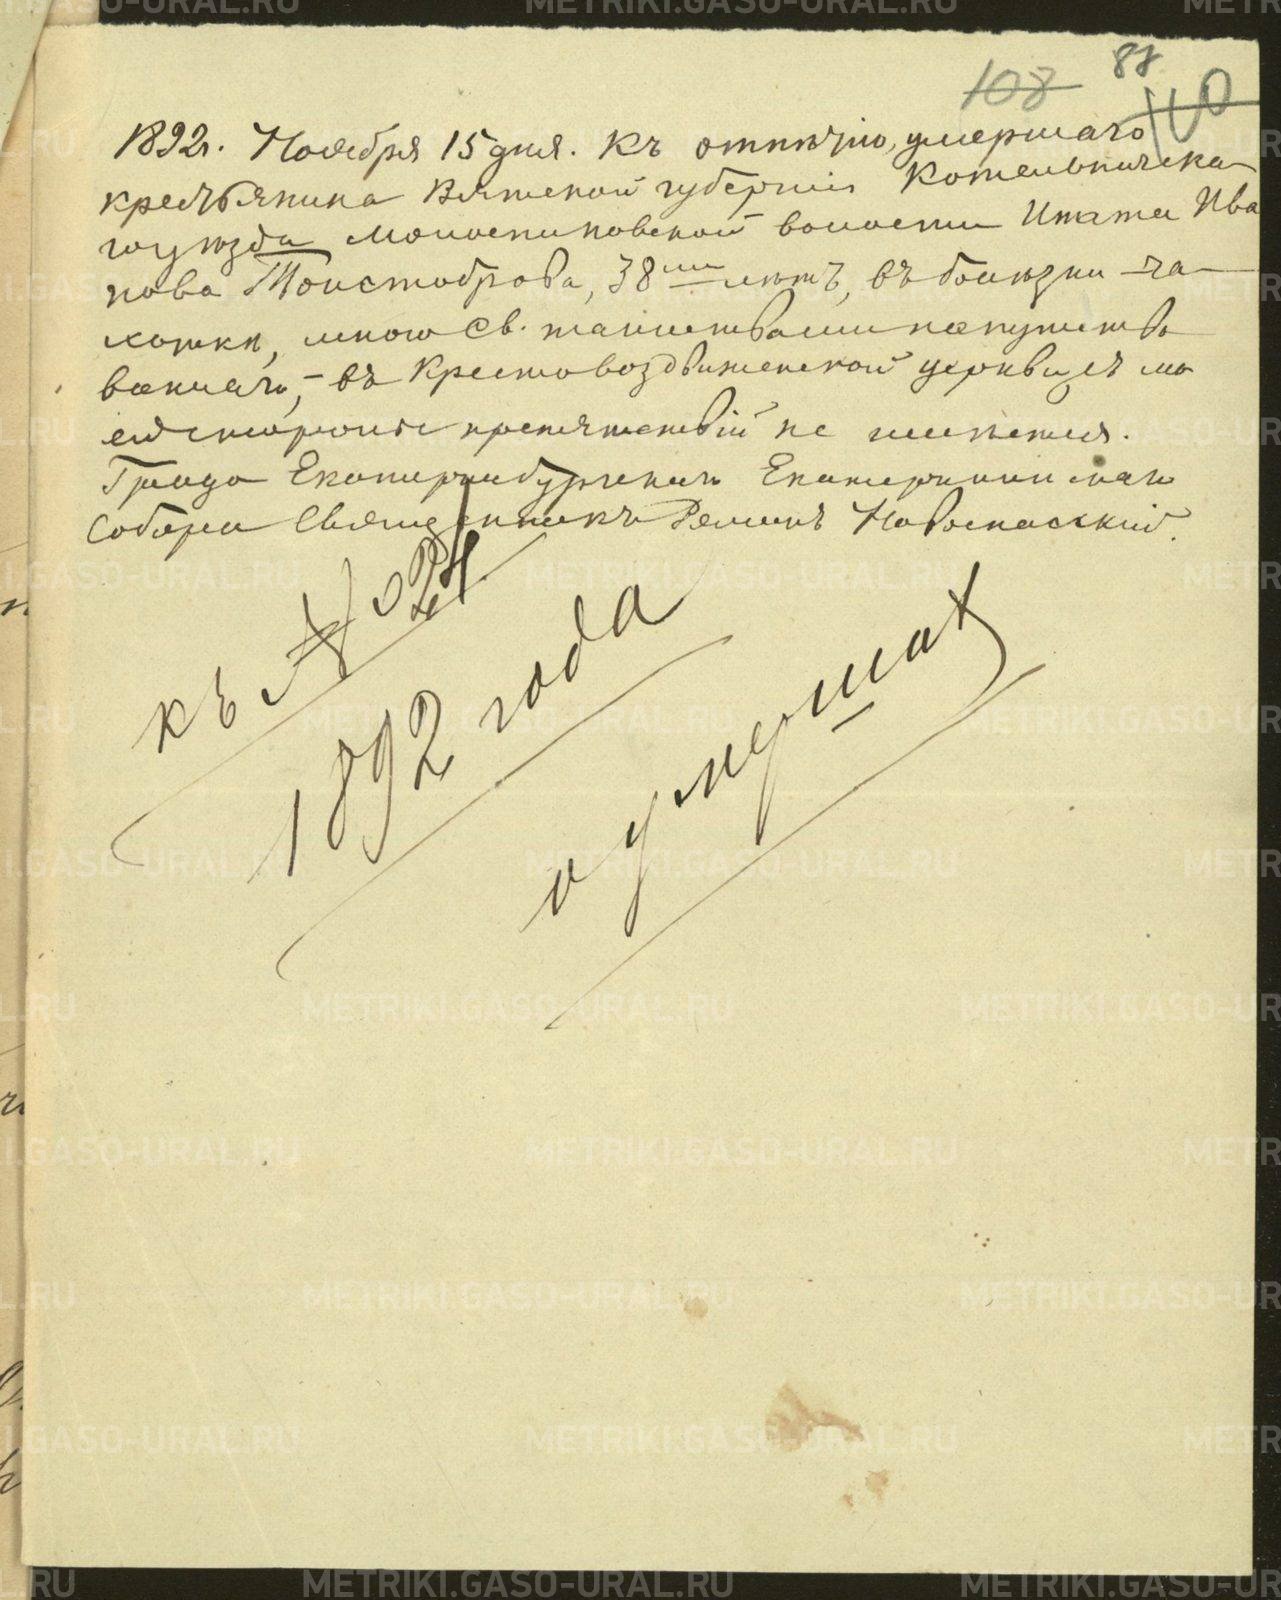 108 88
110
1892г. Ноября 15 дня. Къ отпѣтію, умершаго
крестьянина Вятской губерніи Котельническа-
го уѣзда волости Игнатія Ива
нова Толстоброва, 38ми лѣтъ, въ болѣзни ча-
хотки, мною Св. таинствами напутство
ваннаго, – въ Крестовоздвиженской церкви, съ мо
ей стороны препятствій не имѣется.
Градо Екатеринбургскаго Екатерининскаго
Собора Священникъ Новоспасскій.
къ № 24
1892 года
о умерших
METRIKI.GASO-URAL.RU